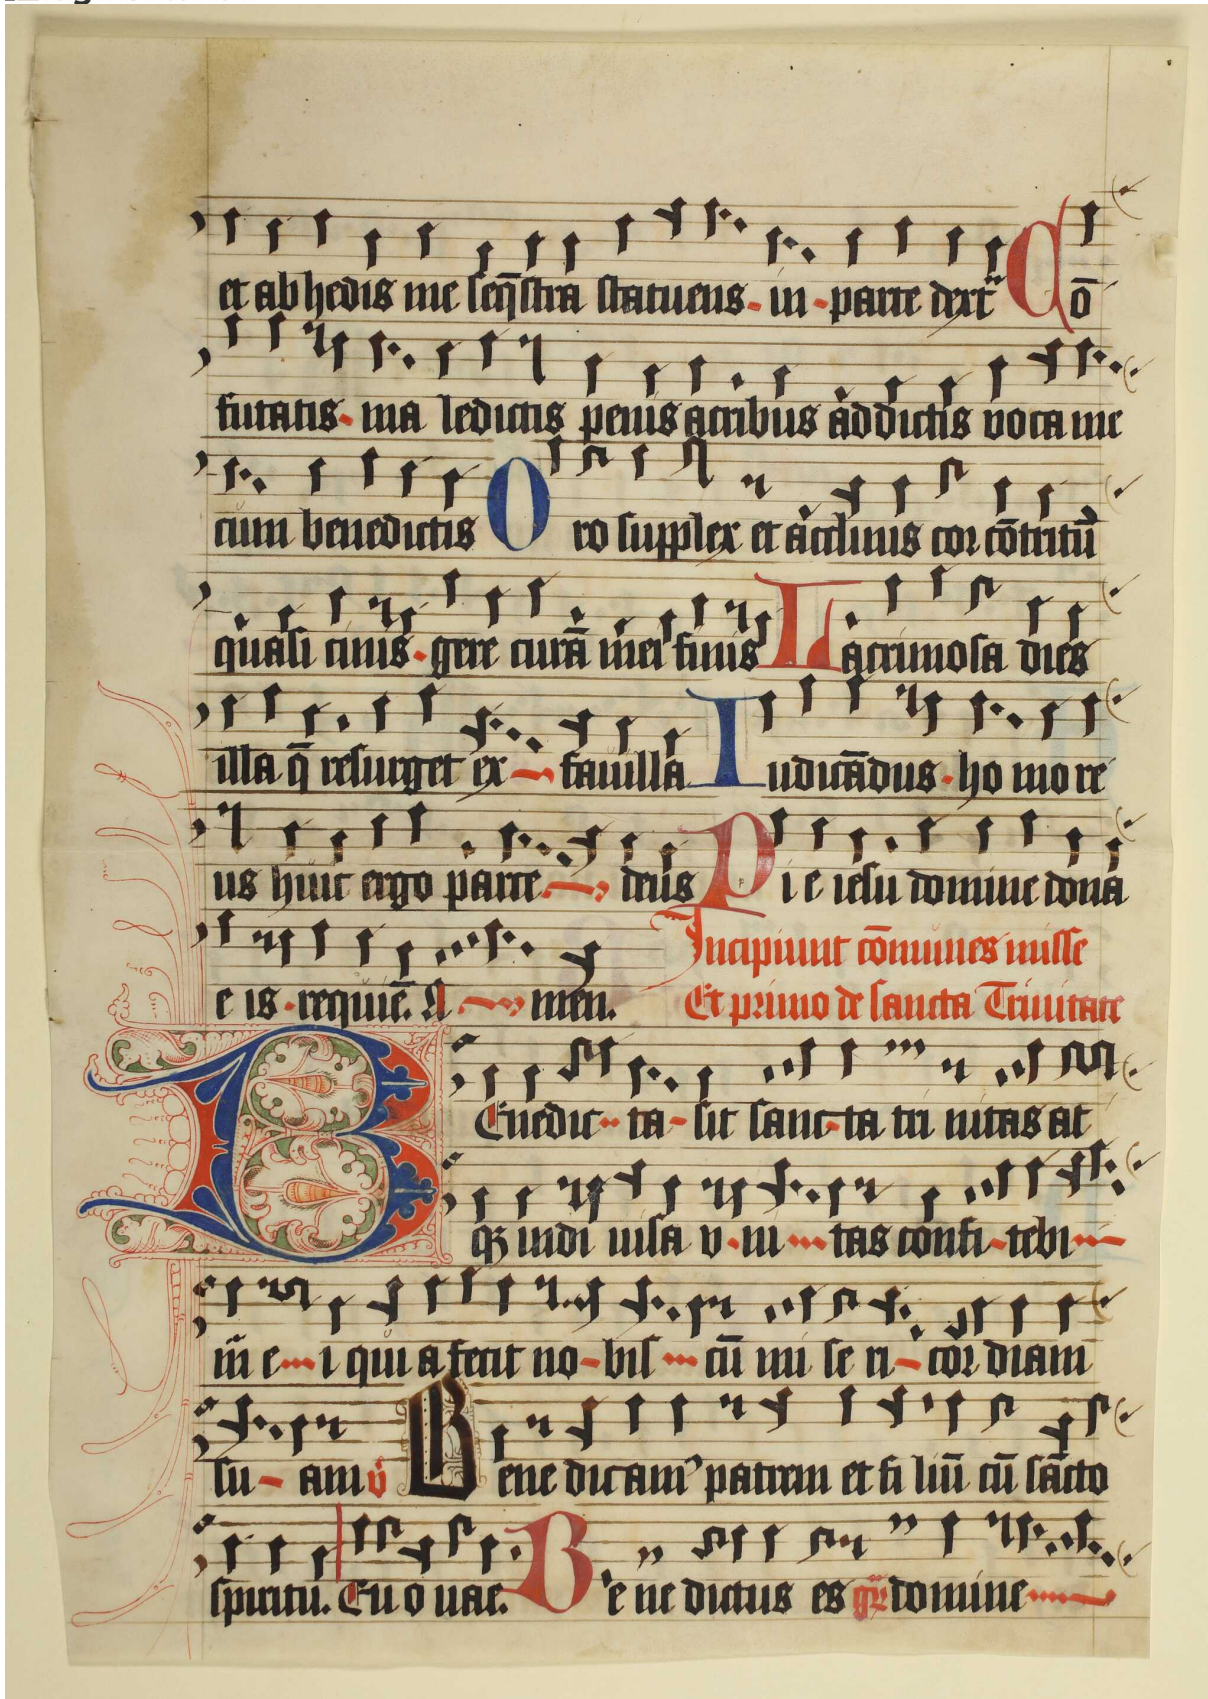 et ab hedis me seq̄stra statuens in parte dext
Cō
futatis ma ledictis penis acribus addictis voca me
cum benedictis Oro supplex et acclinis cor cōtritū
quasi cinis gere curā mei finis Lacrimosa dies
illa q̄ resurget ex fauilla Iudicādus ho mo re
us huic ergo parce deus Pi e iesu domine dona
e is requiē. A men. Incipiunt cōmunes misse
Et primo de sancta Trinitate
Benedic ta sit sanc ta tri nitas at
qꝫ indi uisa v ni tas confi tebi
m̄ e i qui a fecit no bis cū mi se ri cor diam
su am v̾ Bene dicam᾽ patrem et fi liū cū sācto
spiritu. Eu o uae. Be ne dictus es gr̄ domine